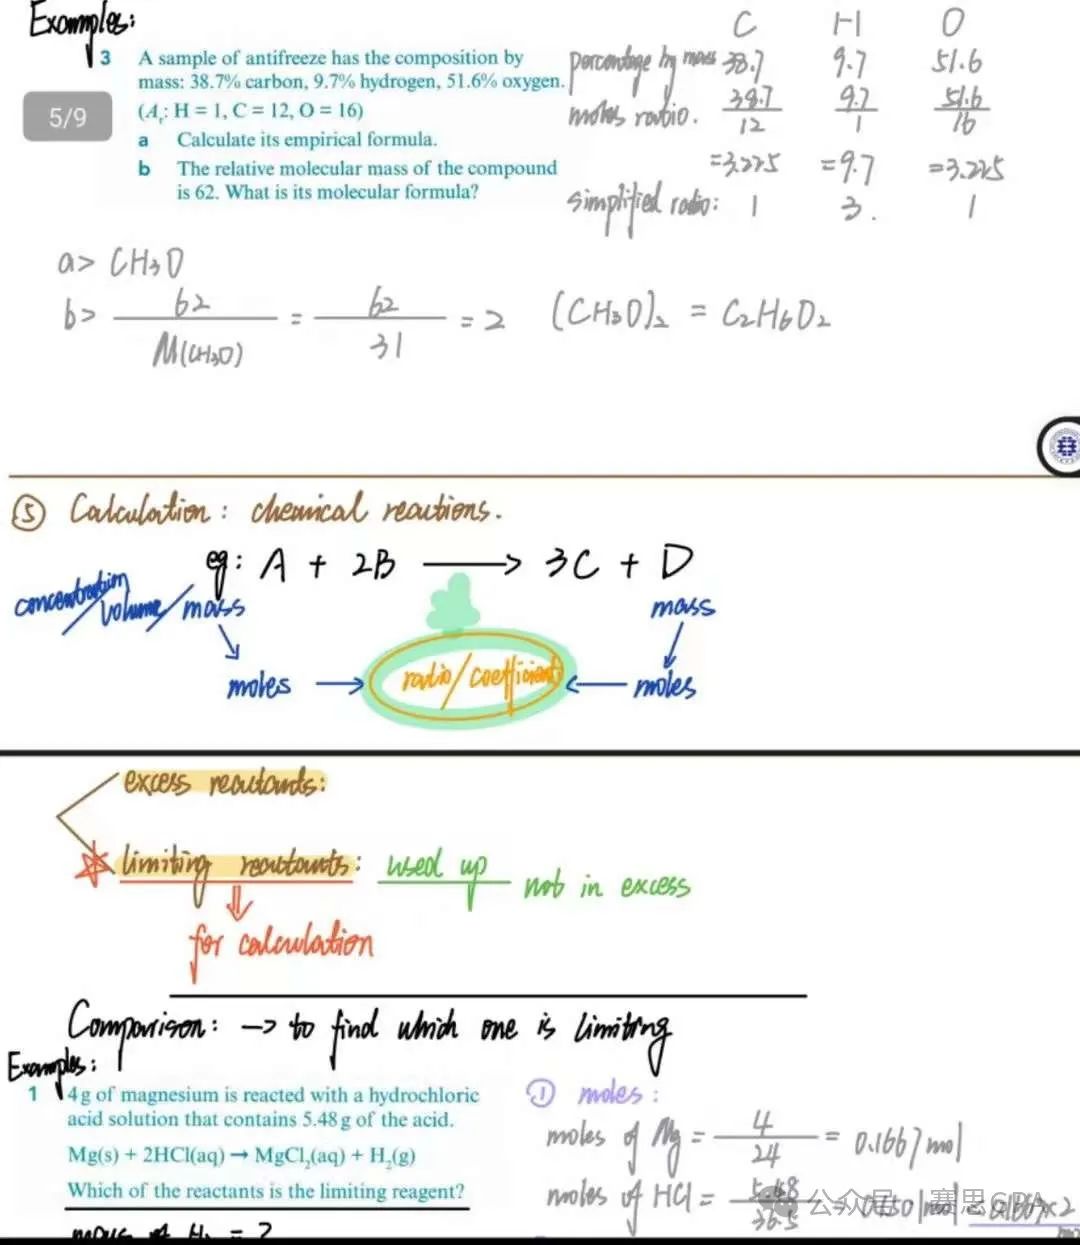 Examples:
3 A sample of antifreeze has the composition by
mass: 38.7% carbon, 9.7% hydrogen, 51.6% oxygen.
(Ar: H = 1, C = 12, O = 16)
a Calculate its empirical formula.
b The relative molecular mass of the compound
is 62. What is its molecular formula?
5/9
C H O
percentage by mass 38.7 9.7 51.6
moles ratio. 38.7/12 9.7/1 51.6/16
=3.225 =9.7 =3.225
simplified ratio: 1 3. 1
a> CH₃O
b> 62/M(CH₃O) = 62/31 = 2 (CH₃O)₂ = C₂H₆O₂
⑤ Calculation: chemical reactions.
eg: A + 2B → 3C + D
concentration/volume/mass mass
moles → ratio/coefficient ← moles
excess reactants:
☆ limiting reactants: used up not in excess
⇓
for calculation
Comparison: → to find which one is limiting
Examples:
1 4 g of magnesium is reacted with a hydrochloric
acid solution that contains 5.48 g of the acid.
Mg(s) + 2HCl(aq) → MgCl₂(aq) + H₂(g)
Which of the reactants is the limiting reagent?
① moles:
moles of Mg = 4/24 = 0.1667 mol
moles of HCl = 5.48/36.5
公众号 · 赛思GPA